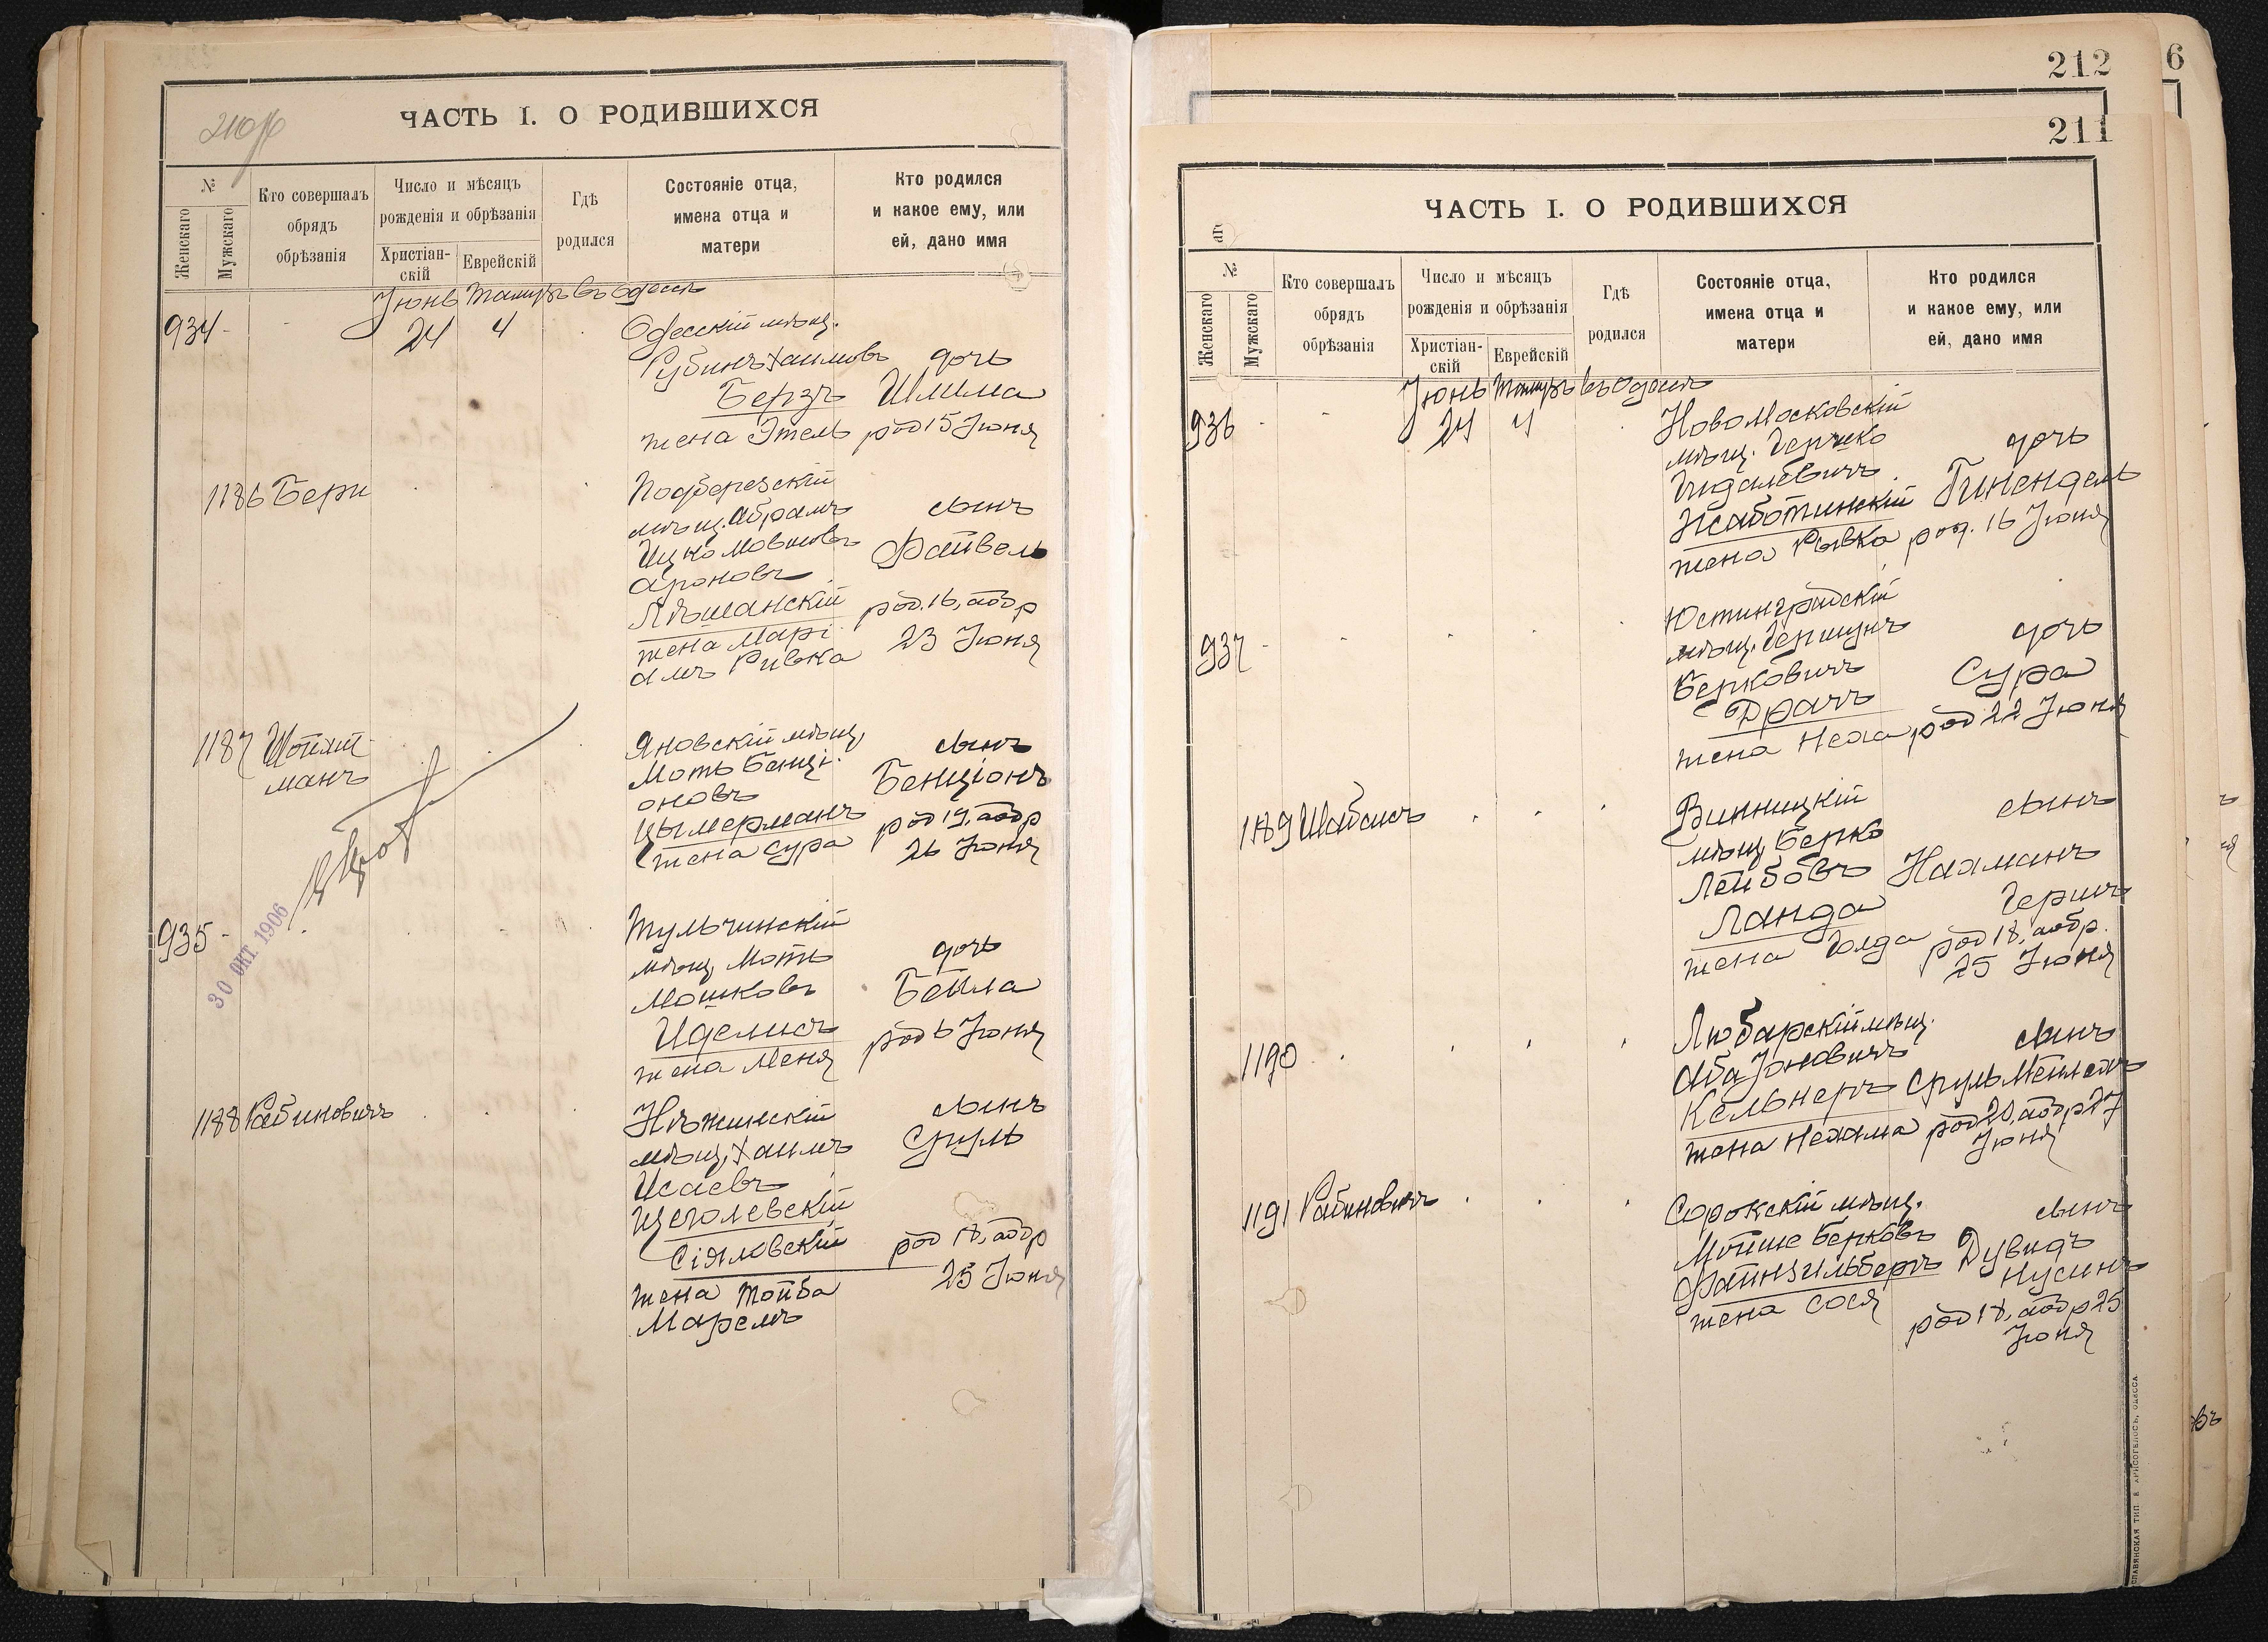 210 об
ЧАСТЬ I. О РОДИВШИХСЯ
№
Женскаго
Мужскаго
Кто совершалъ
обрядъ
обрѣзанія
Число и мѣсяцъ
рожденія и обрѣзанія
Христіан-
скій
Еврейскій
Гдѣ
родился
Состояніе отца,
имена отца и
матери
Кто родился
и какое ему, или
ей, дано имя
Іюнь Тамузъ въ Одессѣ
934 - 24 4 Одесскій мѣщ.
Рубинъ Хаимовъ дочь
Берзъ Шлима
жена Этель род 15 Іюня
1186 Бери Подберезскій
мѣщ. Абрамъ сынъ
Ицко Мовшовъ Файвель
Ароновъ
Лѣшанскій род. 16, абр
жена Марі
амъ Ривка 23 Іюня
1187 Шойхт
манъ
Яновскій мѣщ. сынъ
Моть Бенці-
оновъ Бенціонъ
Цымерманъ род 19, абр
жена Сура 26 Іюня
30 ОКТ. 1906
935 - Тульчинскій
мѣщ. Моть дочь
Мошковъ Бейла
Иделисъ род 6 Іюня
жена Меня
1188 Рабиновичъ Нѣжинскій сынъ
мѣщ. Хаимъ Сруль
Исаевъ
Щеголевскій
Сіяловскій род 18, абр
25 Іюня
жена Тойба
Маремъ
6
212
211
ЧАСТЬ I. О РОДИВШИХСЯ
№
Женскаго
Мужскаго
Кто совершалъ
обрядъ
обрѣзанія
Число и мѣсяцъ
рожденія и обрѣзанія
Христіан-
скій
Еврейскій
Гдѣ
родился
Состояніе отца,
имена отца и
матери
Кто родился
и какое ему, или
ей, дано имя
Іюнь Тамузъ въ Одессѣ
936 - 24 4 Новомосковскій
мѣщ. Гершко дочь
Гидалевичъ
Жаботинскій Гинендель
жена Рывка род. 16 Іюня
937 - Юстинградскій
мѣщ. Гершунъ дочь
Берковичъ Сура
Драчъ
жена Неха род 22 Іюня
1189 Шабасъ Винницкій сынъ
мѣщ. Берко
Лейбовъ Нахманъ
Ланда Гершъ
жена Голда род 18, абр.
25 Іюня
1190 Любарскій мѣщ. сынъ
Аба Іоновичъ
Кельнеръ Сруль Мейлехъ
жена Нехама род 20, абр 27
Іюня
1191 Рабиновичъ Сорокскій мѣщ. сынъ
Мойше Берковъ Дувидъ
Файнзильберъ Нусинъ
жена Сося
род 18, абр 25
Іюня
СЛАВЯНСКАЯ ТИП. Е. ХРИСОГЕЛОСЪ, ОДЕССА